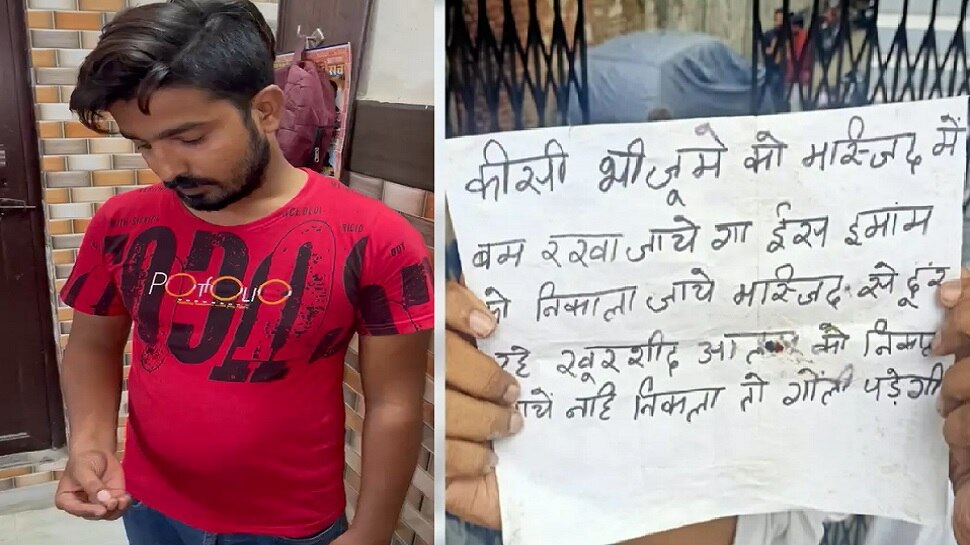 POTFOLIO
कीसी भी जूमे को मस्जिद में
बम रखा जाये गा ईस इमांम
को निकाला जाये मस्जिद से दूर
रहे खूरशीद को निकाल
जाये नहि निकला तो गोली पड़ेगी